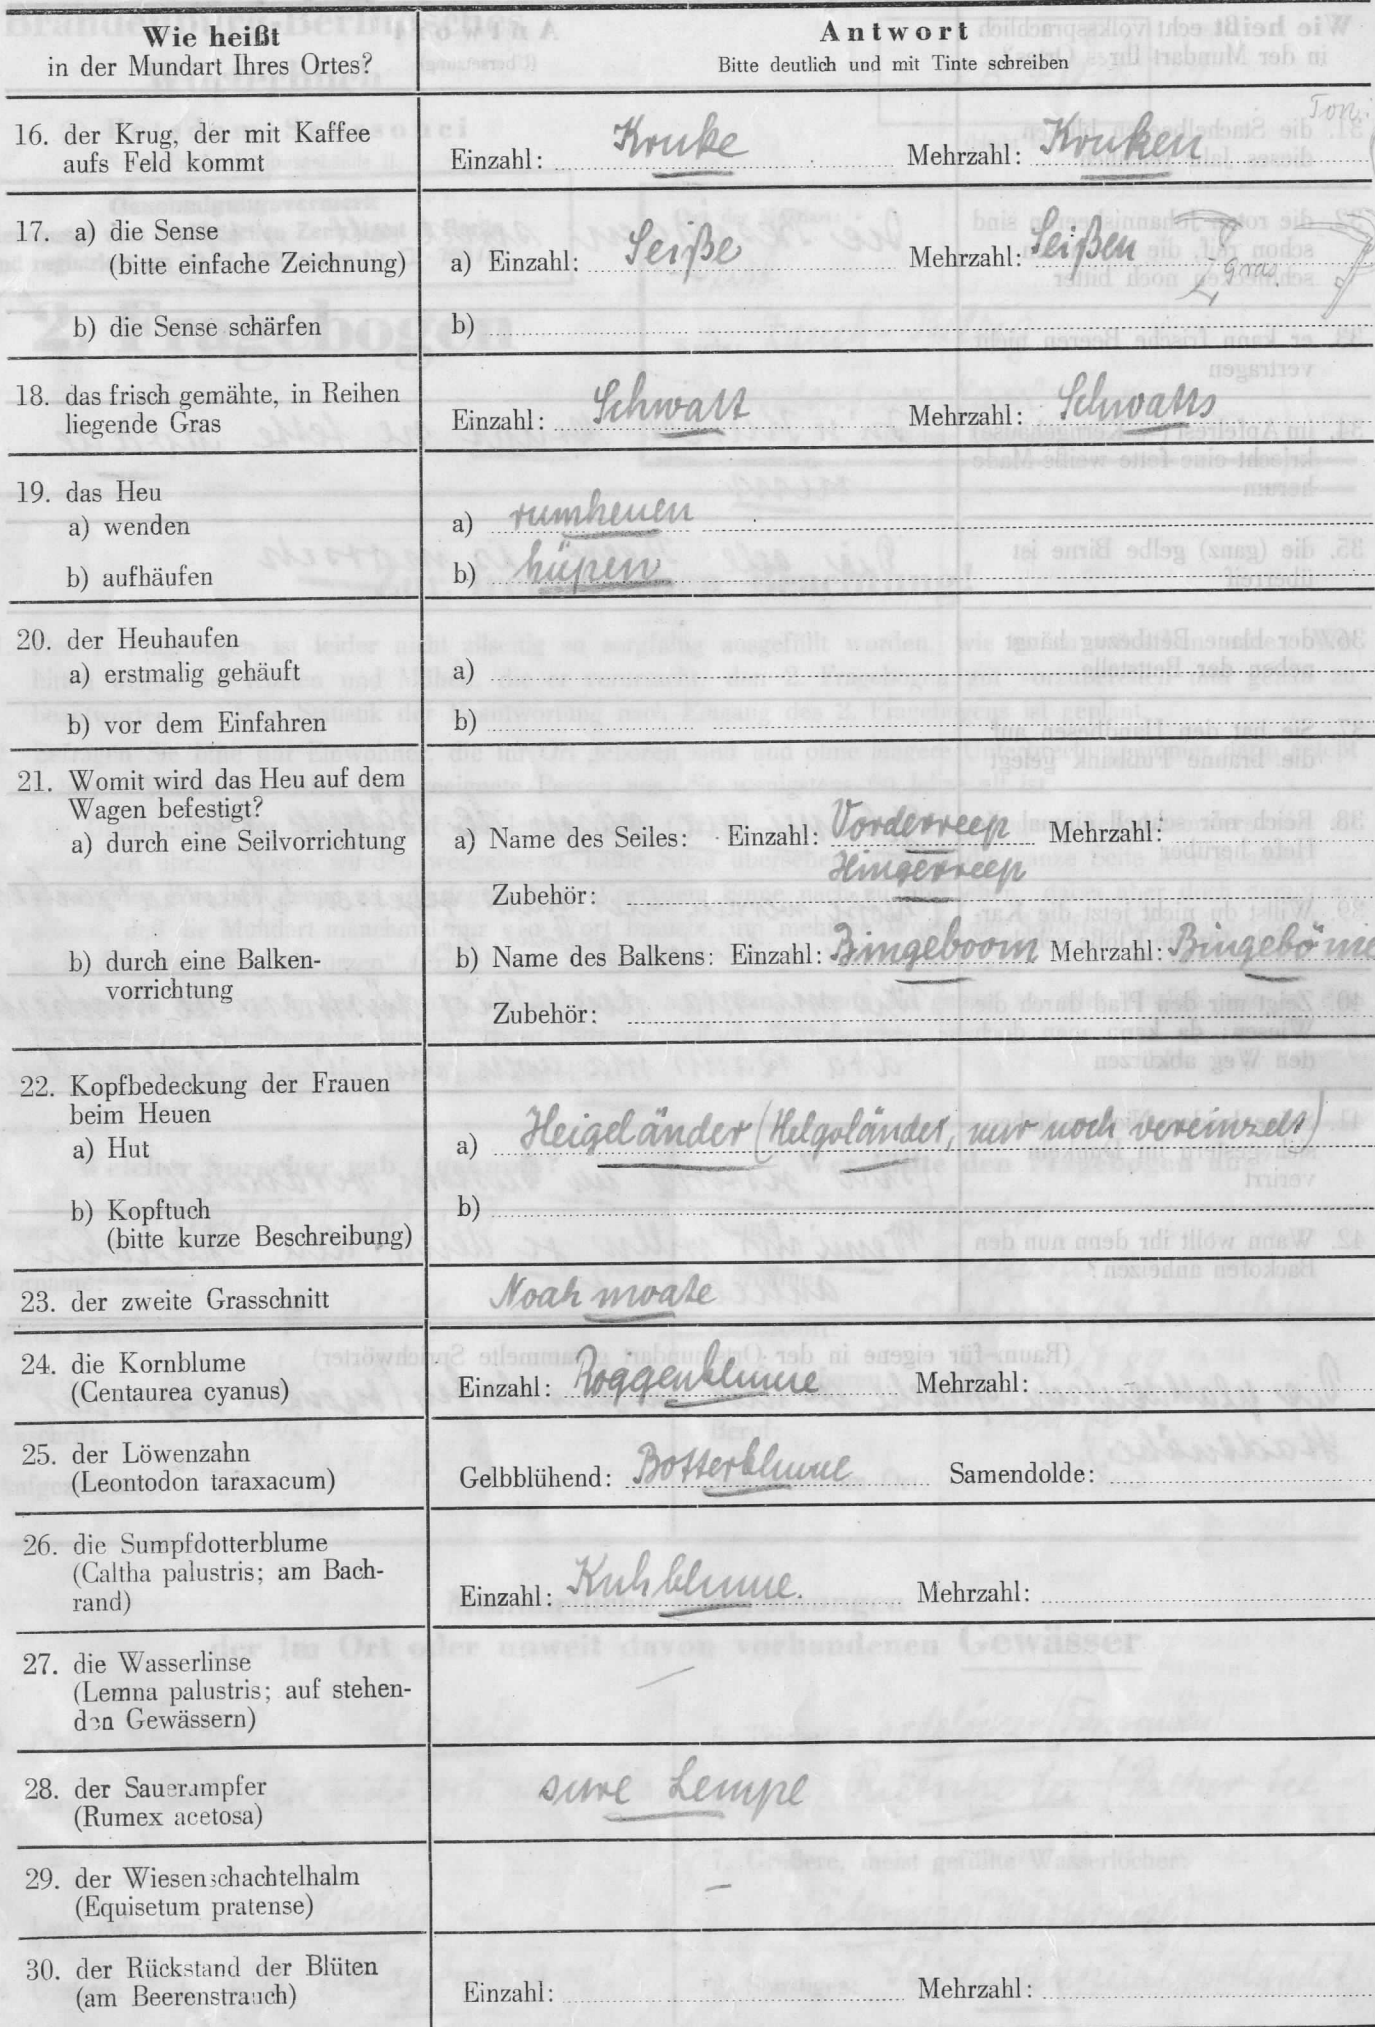 Wie heißt
in der Mundart Ihres Ortes?
Antwort
Bitte deutlich und mit Tinte schreiben
16. der Krug, der mit Kaffee
aufs Feld kommt
Einzahl: Kruke Mehrzahl: Kruken
Ton.
17. a) die Sense
(bitte einfache Zeichnung)
a) Einzahl: Seiße Mehrzahl: Seißen
Gras
b) die Sense schärfen
b)
18. das frisch gemähte, in Reihen
liegende Gras
Einzahl: Schwatt Mehrzahl: Schwatts
19. das Heu
a) wenden
a) rumheuen
b) aufhäufen
b) hüpen
20. der Heuhaufen
a) erstmalig gehäuft
a)
b) vor dem Einfahren
b)
21. Womit wird das Heu auf dem
Wagen befestigt?
a) durch eine Seilvorrichtung
a) Name des Seiles: Einzahl: Vorderreep Mehrzahl:
Hingerreep
Zubehör:
b) durch eine Balken-
vorrichtung
b) Name des Balkens: Einzahl: Bingeboom Mehrzahl: Bingeböme
Zubehör:
22. Kopfbedeckung der Frauen
beim Heuen
a) Hut
a) Heigeländer (Helgoländer, nur noch vereinzelt)
b) Kopftuch
(bitte kurze Beschreibung)
b)
23. der zweite Grasschnitt
Noahmoate
24. die Kornblume
(Centaurea cyanus)
Einzahl: Roggenblume Mehrzahl:
25. der Löwenzahn
(Leontodon taraxacum)
Gelbblühend: Botterblume Samendolde:
26. die Sumpfdotterblume
(Caltha palustris; am Bach-
rand)
Einzahl: Kuhblume. Mehrzahl:
27. die Wasserlinse
(Lemna palustris; auf stehen-
den Gewässern)
—
28. der Sauerampfer
(Rumex acetosa)
sure Lempe
29. der Wiesenschachtelhalm
(Equisetum pratense)
—
30. der Rückstand der Blüten
(am Beerenstrauch)
Einzahl: Mehrzahl: